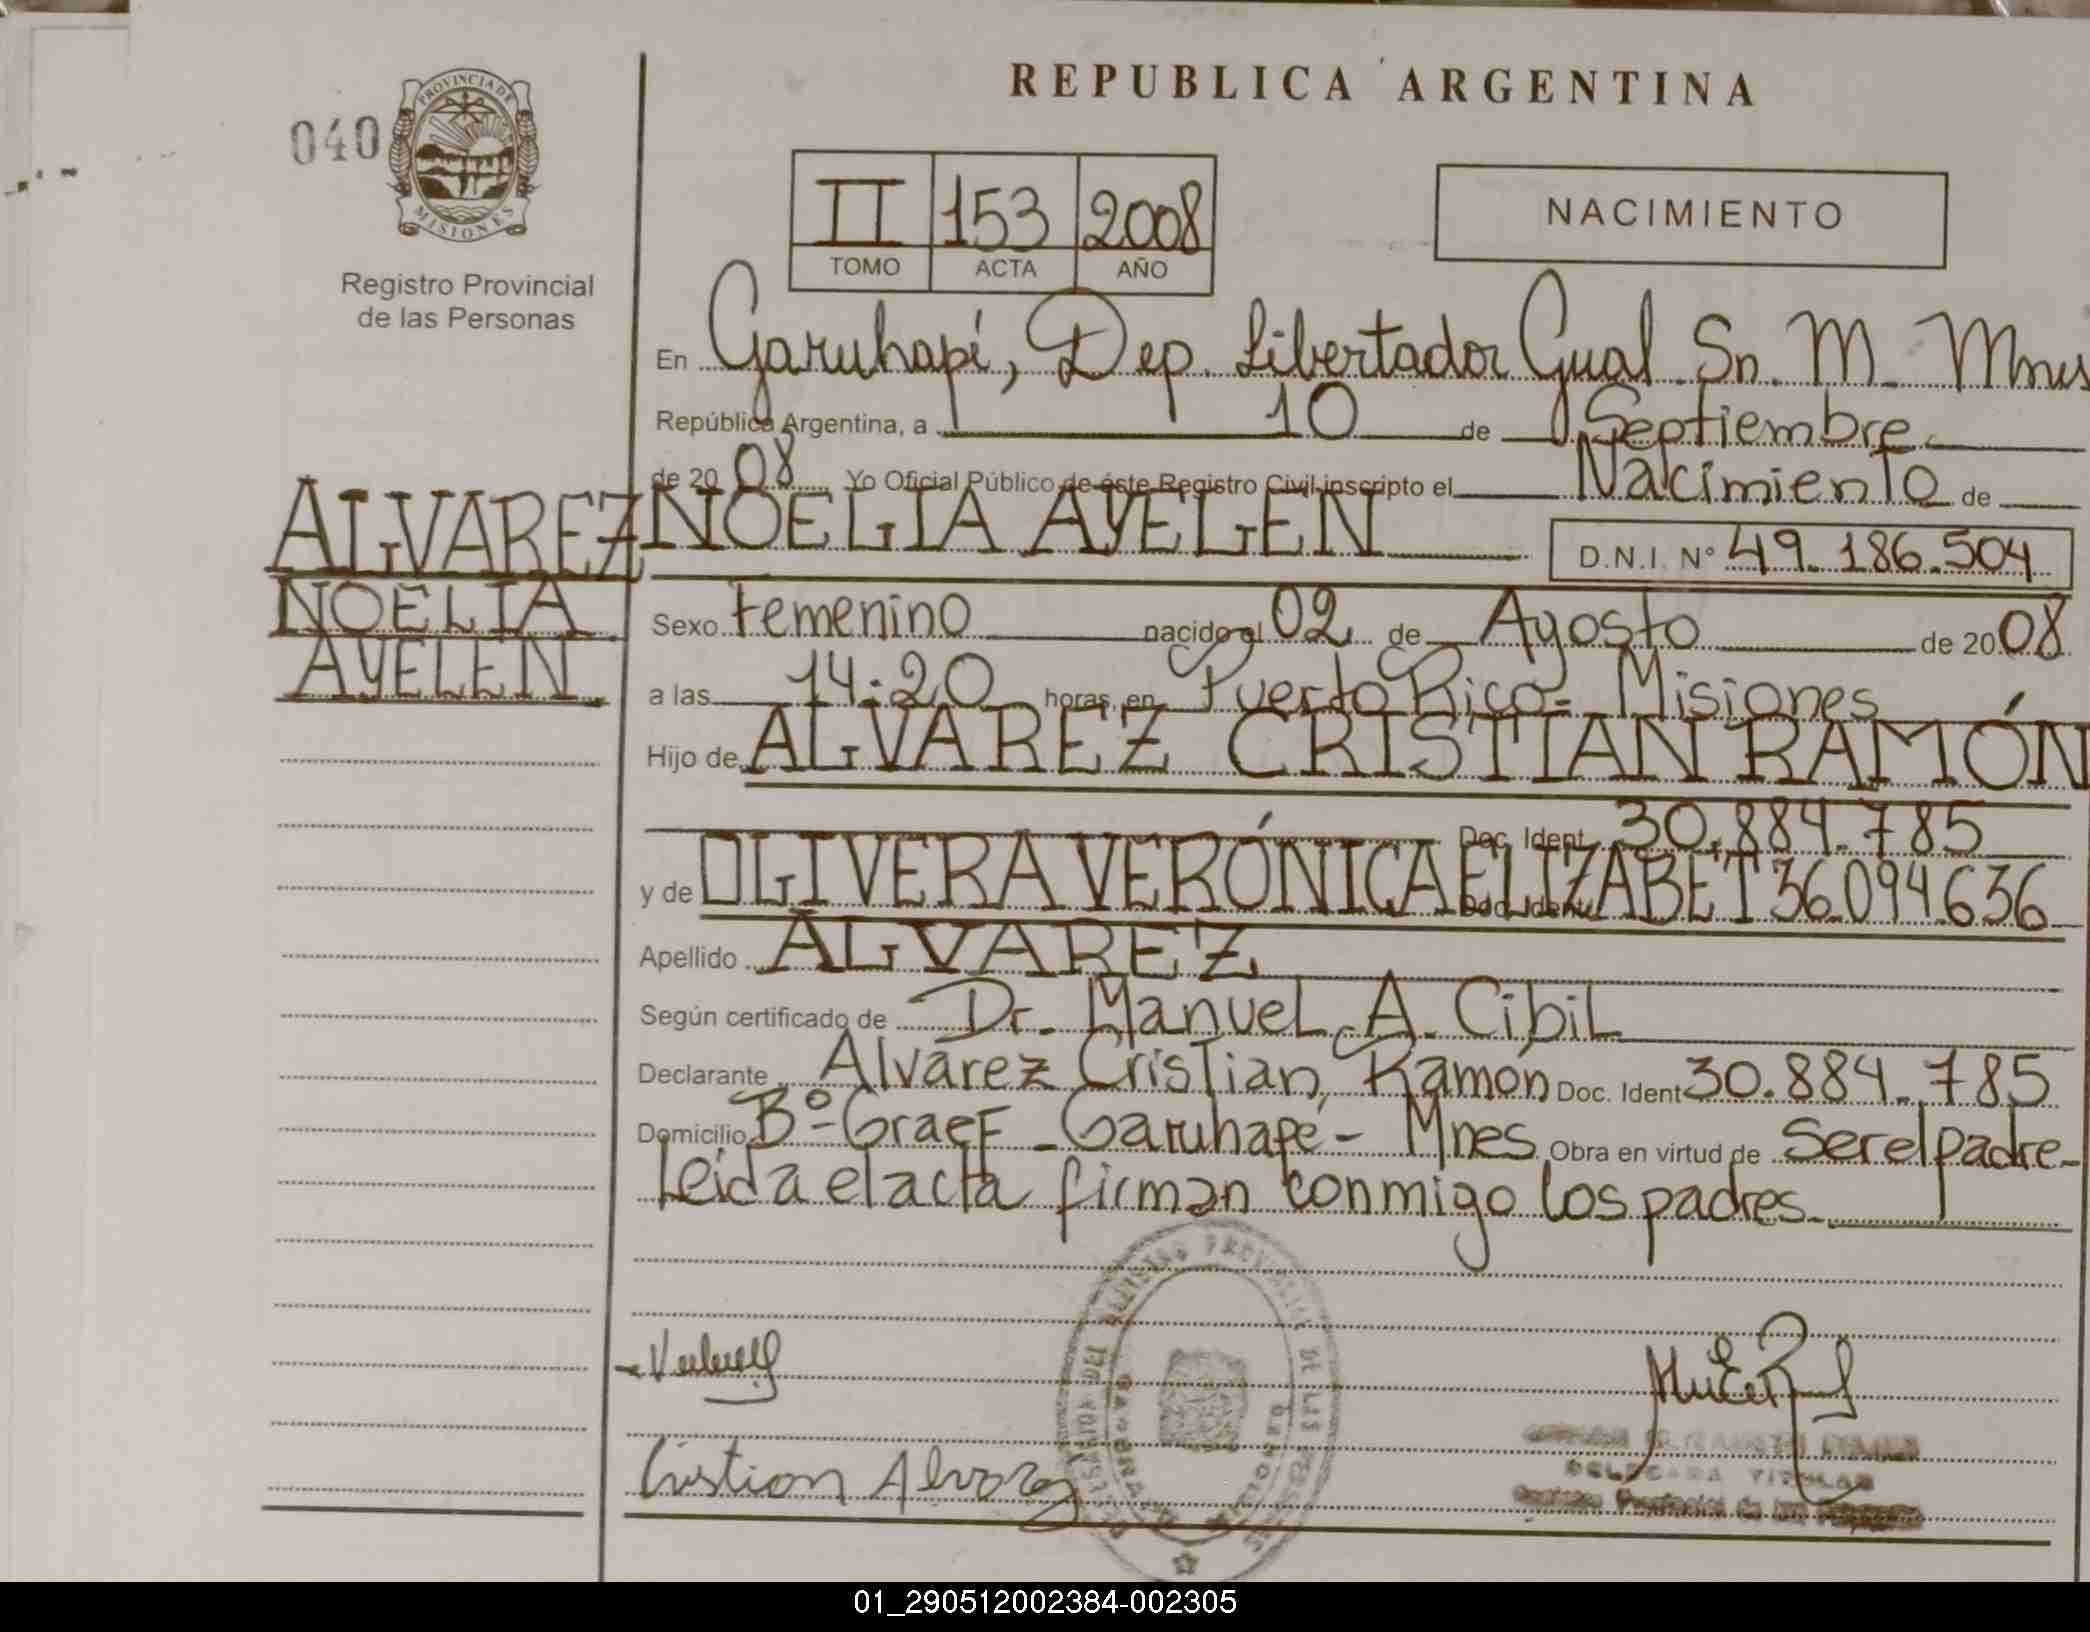 REPUBLICA ARGENTINA
040
PROVINCIA DE
MISIONES
Registro Provincial
de las Personas
II 153 2008
TOMO ACTA AÑO
NACIMIENTO
En Garuhapé, Dep. Libertador Gual Sn. M. Mnes
República Argentina, a 10 de Septiembre
de 20 08 Yo Oficial Público de éste Registro Civil inscripto el Nacimiento de
ALVAREZ NOELIA AYELEN D.N.I. Nº 49.186.504
NOELIA
AYELEN
Sexo Femenino nacido el 02 de Agosto de 20 08
a las 14:20 horas, en Puerto Rico - Misiones
Hijo de ALVAREZ CRISTIAN RAMÓN
Doc. Ident. 30.884.785
y de OLIVERA VERÓNICA ELIZABET Doc. Ident. 36094636
Apellido ALVAREZ
Según certificado de Dr. Manuel A. Cibil
Declarante Alvarez Cristian Ramón Doc. Ident 30.884.785
Domicilio Bº-Graef - Garuhapé - Mnes Obra en virtud de ser el padre-
Leida el acta firman conmigo los padres.
Cristian Alvarez
DELEGADA TITULAR
01_290512002384-002305